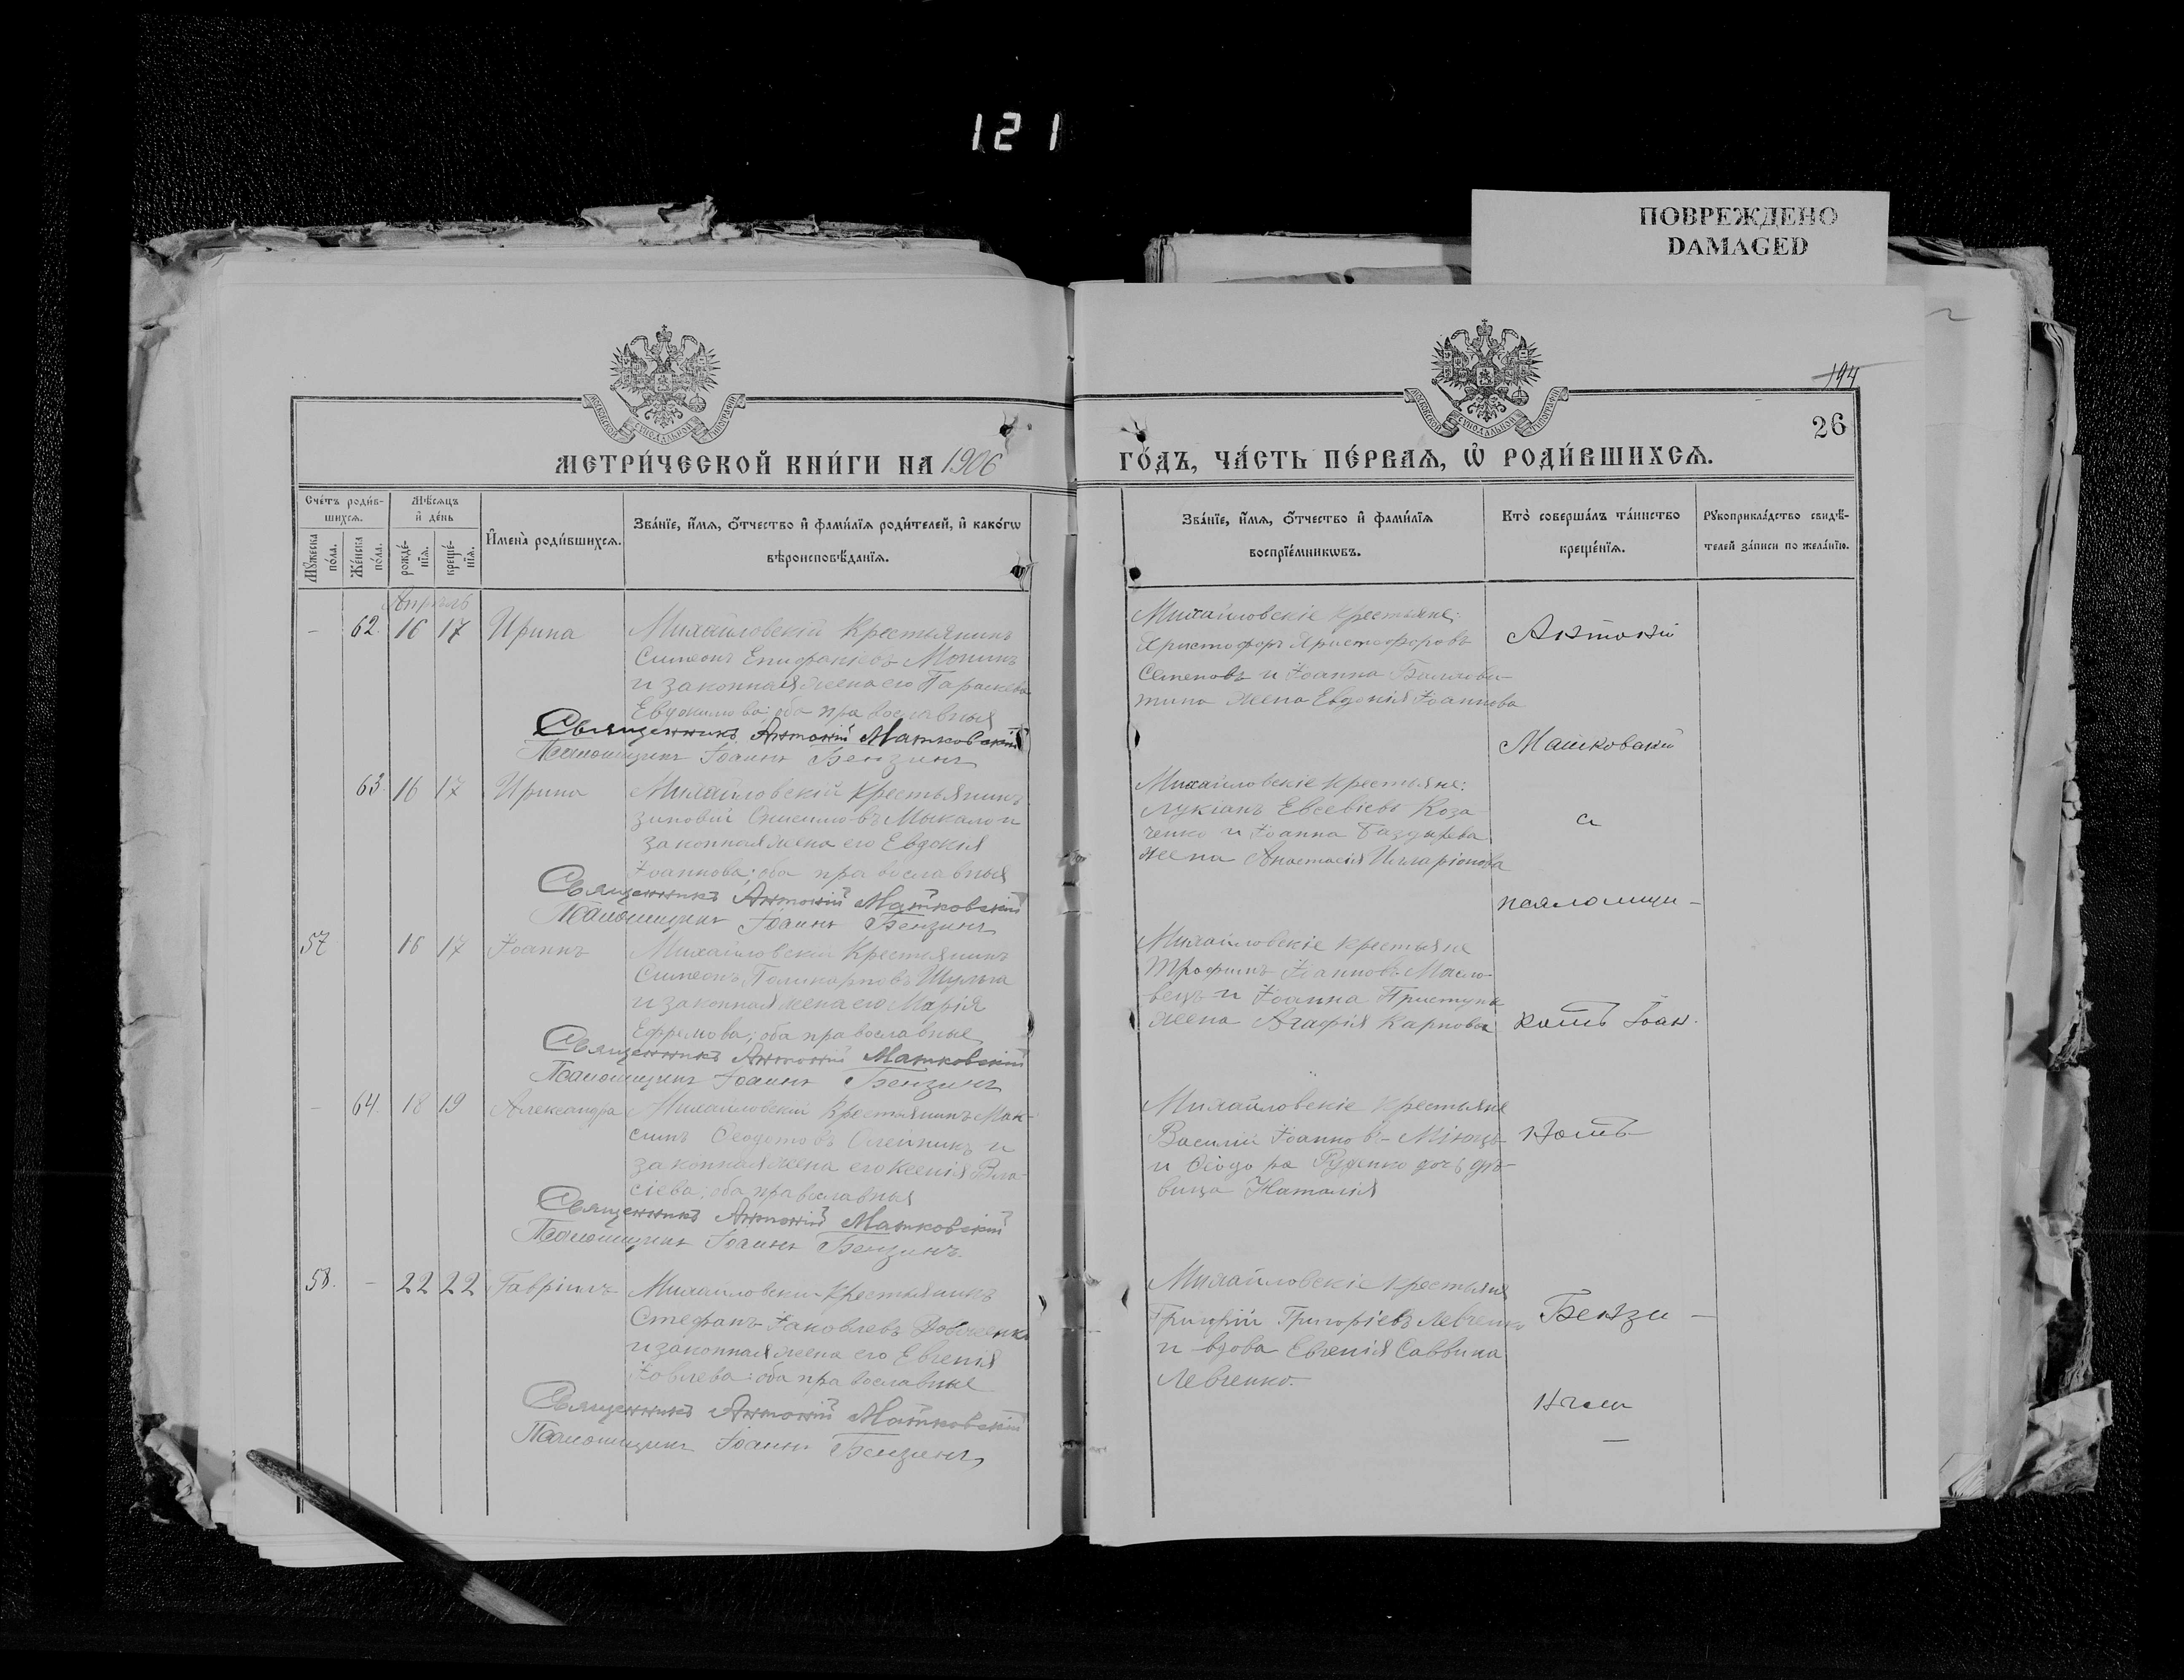 121
ПОВРЕЖДЕНО
DAMAGED
194
26
МОСКОВСКОЙ СѴНОДАЛЬНОЙ ТИПОГРАФІИ
МОСКОВСКОЙ СѴНОДАЛЬНОЙ ТИПОГРАФІИ
МЕТРИ́ЧЕСКОЙ КНИ́ГИ НА 1906
ГО́ДЪ, ЧА́СТЬ ПЕ́РВАѦ, Ѡ҆ РОДИ́ВШИХСѦ.
Сче́тъ роди́в-
шихсѧ.
Мꙋ́жеска
по́ла.
Же́нска
по́ла.
Мѣ́сѧцъ
и҆ де́нь
рожде́-
нїѧ.
креще́-
нїѧ.
И҆мена̀ роди́вшихсѧ.
Зва́нїе, и҆́мѧ, ѻ҆́тчество и҆ фами́лїѧ роди́телей, и҆ како́гѡ
вѣроисповѣ́данїѧ.
Зва́нїе, и҆́мѧ, ѻ҆́тчество и҆ фами́лїѧ
воспрїе́мникѡвъ.
Кто̀ соверша́лъ та́инство
креще́нїѧ.
Рꙋкоприкла́дство свидѣ́-
телей за́писи по жела́нїю.
Апрѣль
– 62. 16 17 Ирина
Михайловскій Крестьянинъ
Симеонъ Епифаніевъ Мотинъ
и законная жена его Параскева
Евдокимова; оба православныя
Священникъ Антоній Матковскій
Псаломщикъ Іоаннъ Бензинъ
Михайловскіе крестьяне:
Христофоръ Христофоровъ
Семеновъ и Іоанна
жена Евдокія Іоаннова
63. 16 17 Ирина
Михайловскій крестьянинъ
Зиновій Мыкало и
законная жена его Евдокія
Іоаннова; оба православныя
Священникъ Антоній Матковскій
Псаломщикъ Іоаннъ Бензинъ
Михайловскіе крестьяне:
Лукіанъ Евсевіевъ Коза
ченко и Іоанна
жена Анастасія Илларіонова
57 16 17 Іоаннъ
Михайловскій Крестьянинъ
Симеонъ Поликарповъ Шульга
и законная жена его Марія
Ефремова; оба православные
Священникъ Антоній Матковскій
Псаломщикъ Іоаннъ Бензинъ
Михайловскіе крестьяне
Трофимъ Іоанновъ Масло-
вецъ и Іоанна Приступа
жена Агафія Карпова
– 64. 18 19 Александра
Михайловскій Крестьянинъ Мак-
симъ Ѳеодотовъ Олейникъ и
законная жена его Ксенія Вла-
сіева; оба православныя
Священникъ Антоній Матковскій
Псаломщикъ Іоаннъ Бензинъ
Михайловскіе крестьяне
Василій Іоанновъ
и Ѳіодора Руденко дочь дѣ-
вица Наталія
58. – 22 22 Гавріилъ
Михайловскій Крестьянинъ
Стефанъ Іаковлевъ Довженко
и законная жена его Евгенія
Іовлева; оба православные
Священникъ Антоній Матковскій
Псаломщикъ Іоаннъ Бензинъ
Михайловскіе крестьяне
Григорій Григоріевъ Левченко
и вдова Евгенія Саввина
Левченко.
Антоній
Матковскій
с
псаломщи-
комъ Іоан.
номъ
Бензи-
нгмъ